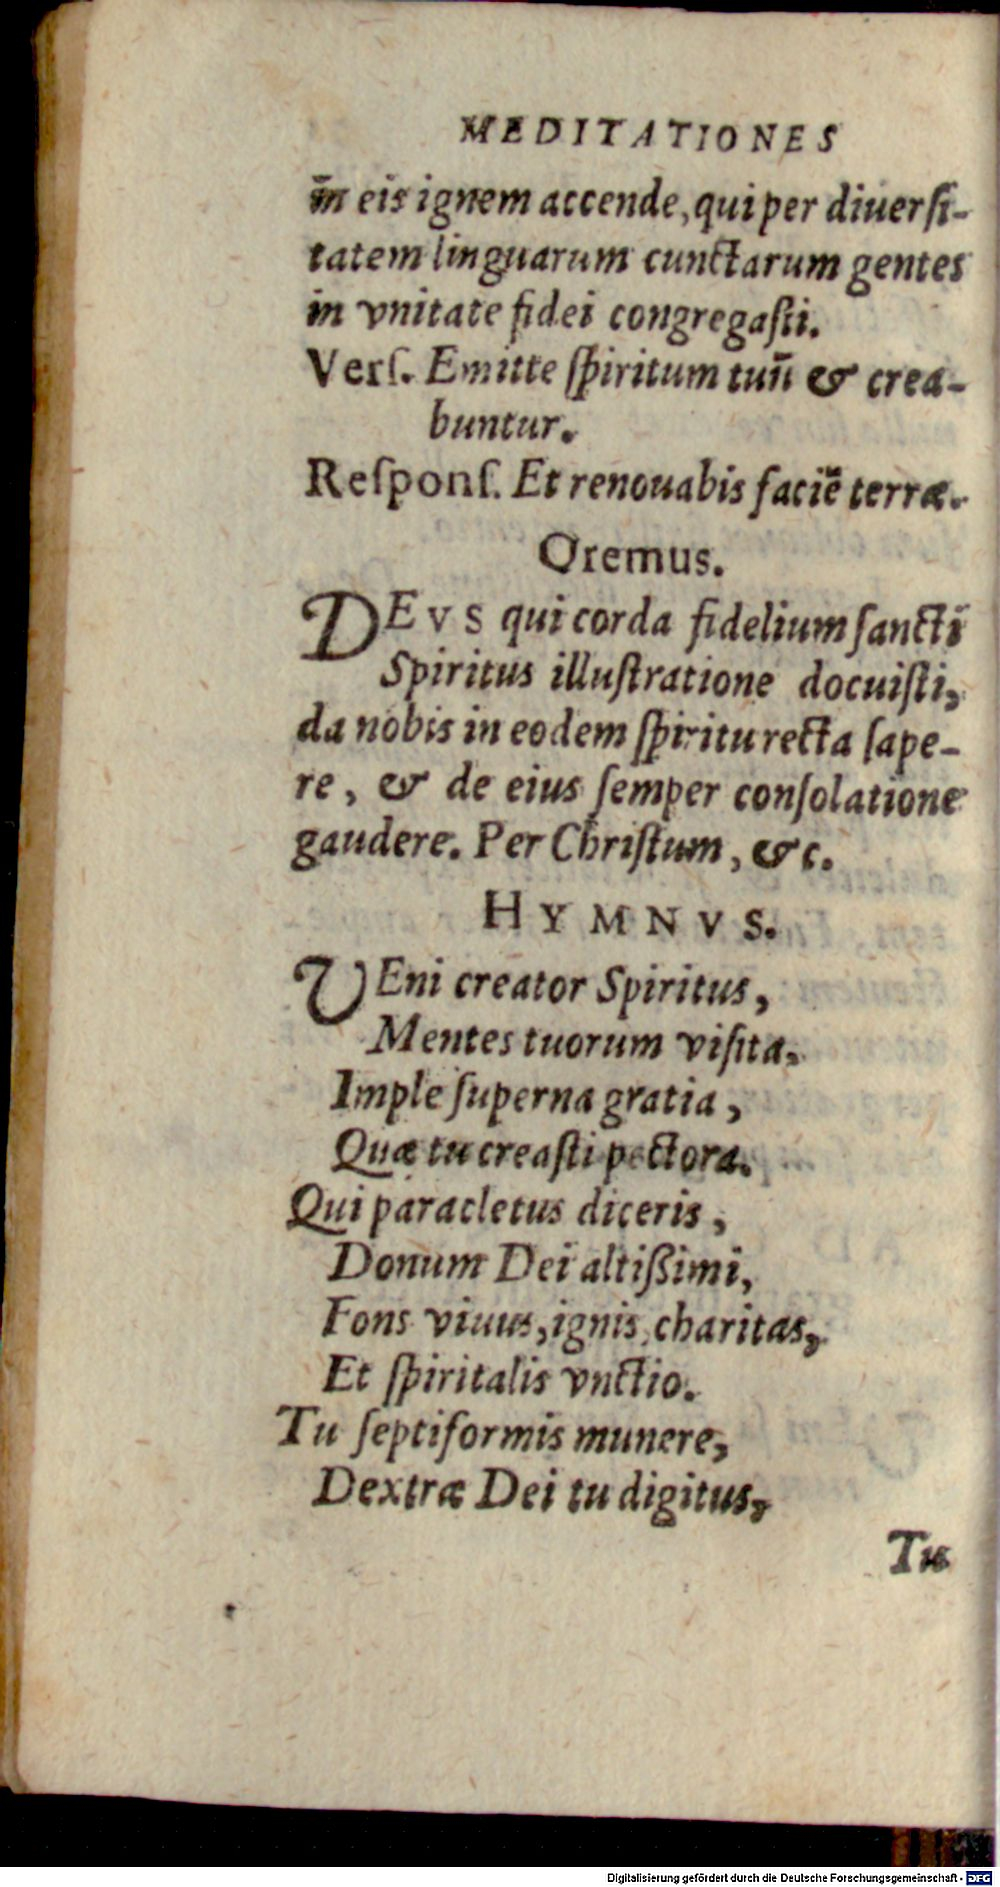 MEDITATIONES
in eis ignem accende, qui per diuerſi-
tatem linguarum cunctarum gentes
in vnitate fidei congregaſti.
Verſ. Emitte ſpiritum tuū & crea-
buntur.
Reſponſ. Et renouabis faciē terræ.
Oremus.
DEVS qui corda fidelium ſancti
Spiritus illuſtratione docuiſti,
da nobis in eodem ſpiritu recta ſape-
re, & de eius ſemper conſolatione
gaudere. Per Chriſtum, &c.
HYMNVS.
VEni creator Spiritus,
Mentes tuorum viſita.
Imple ſuperna gratia,
Quæ tu creaſti pectora.
Qui paracletus diceris,
Donum Dei altiſsimi,
Fons viuus, ignis, charitas,
Et ſpiritalis vnctio.
Tu ſeptiformis munere,
Dextræ Dei tu digitus,
Tu
Digitalisierung gefördert durch die Deutsche Forschungsgemeinschaft - DFG